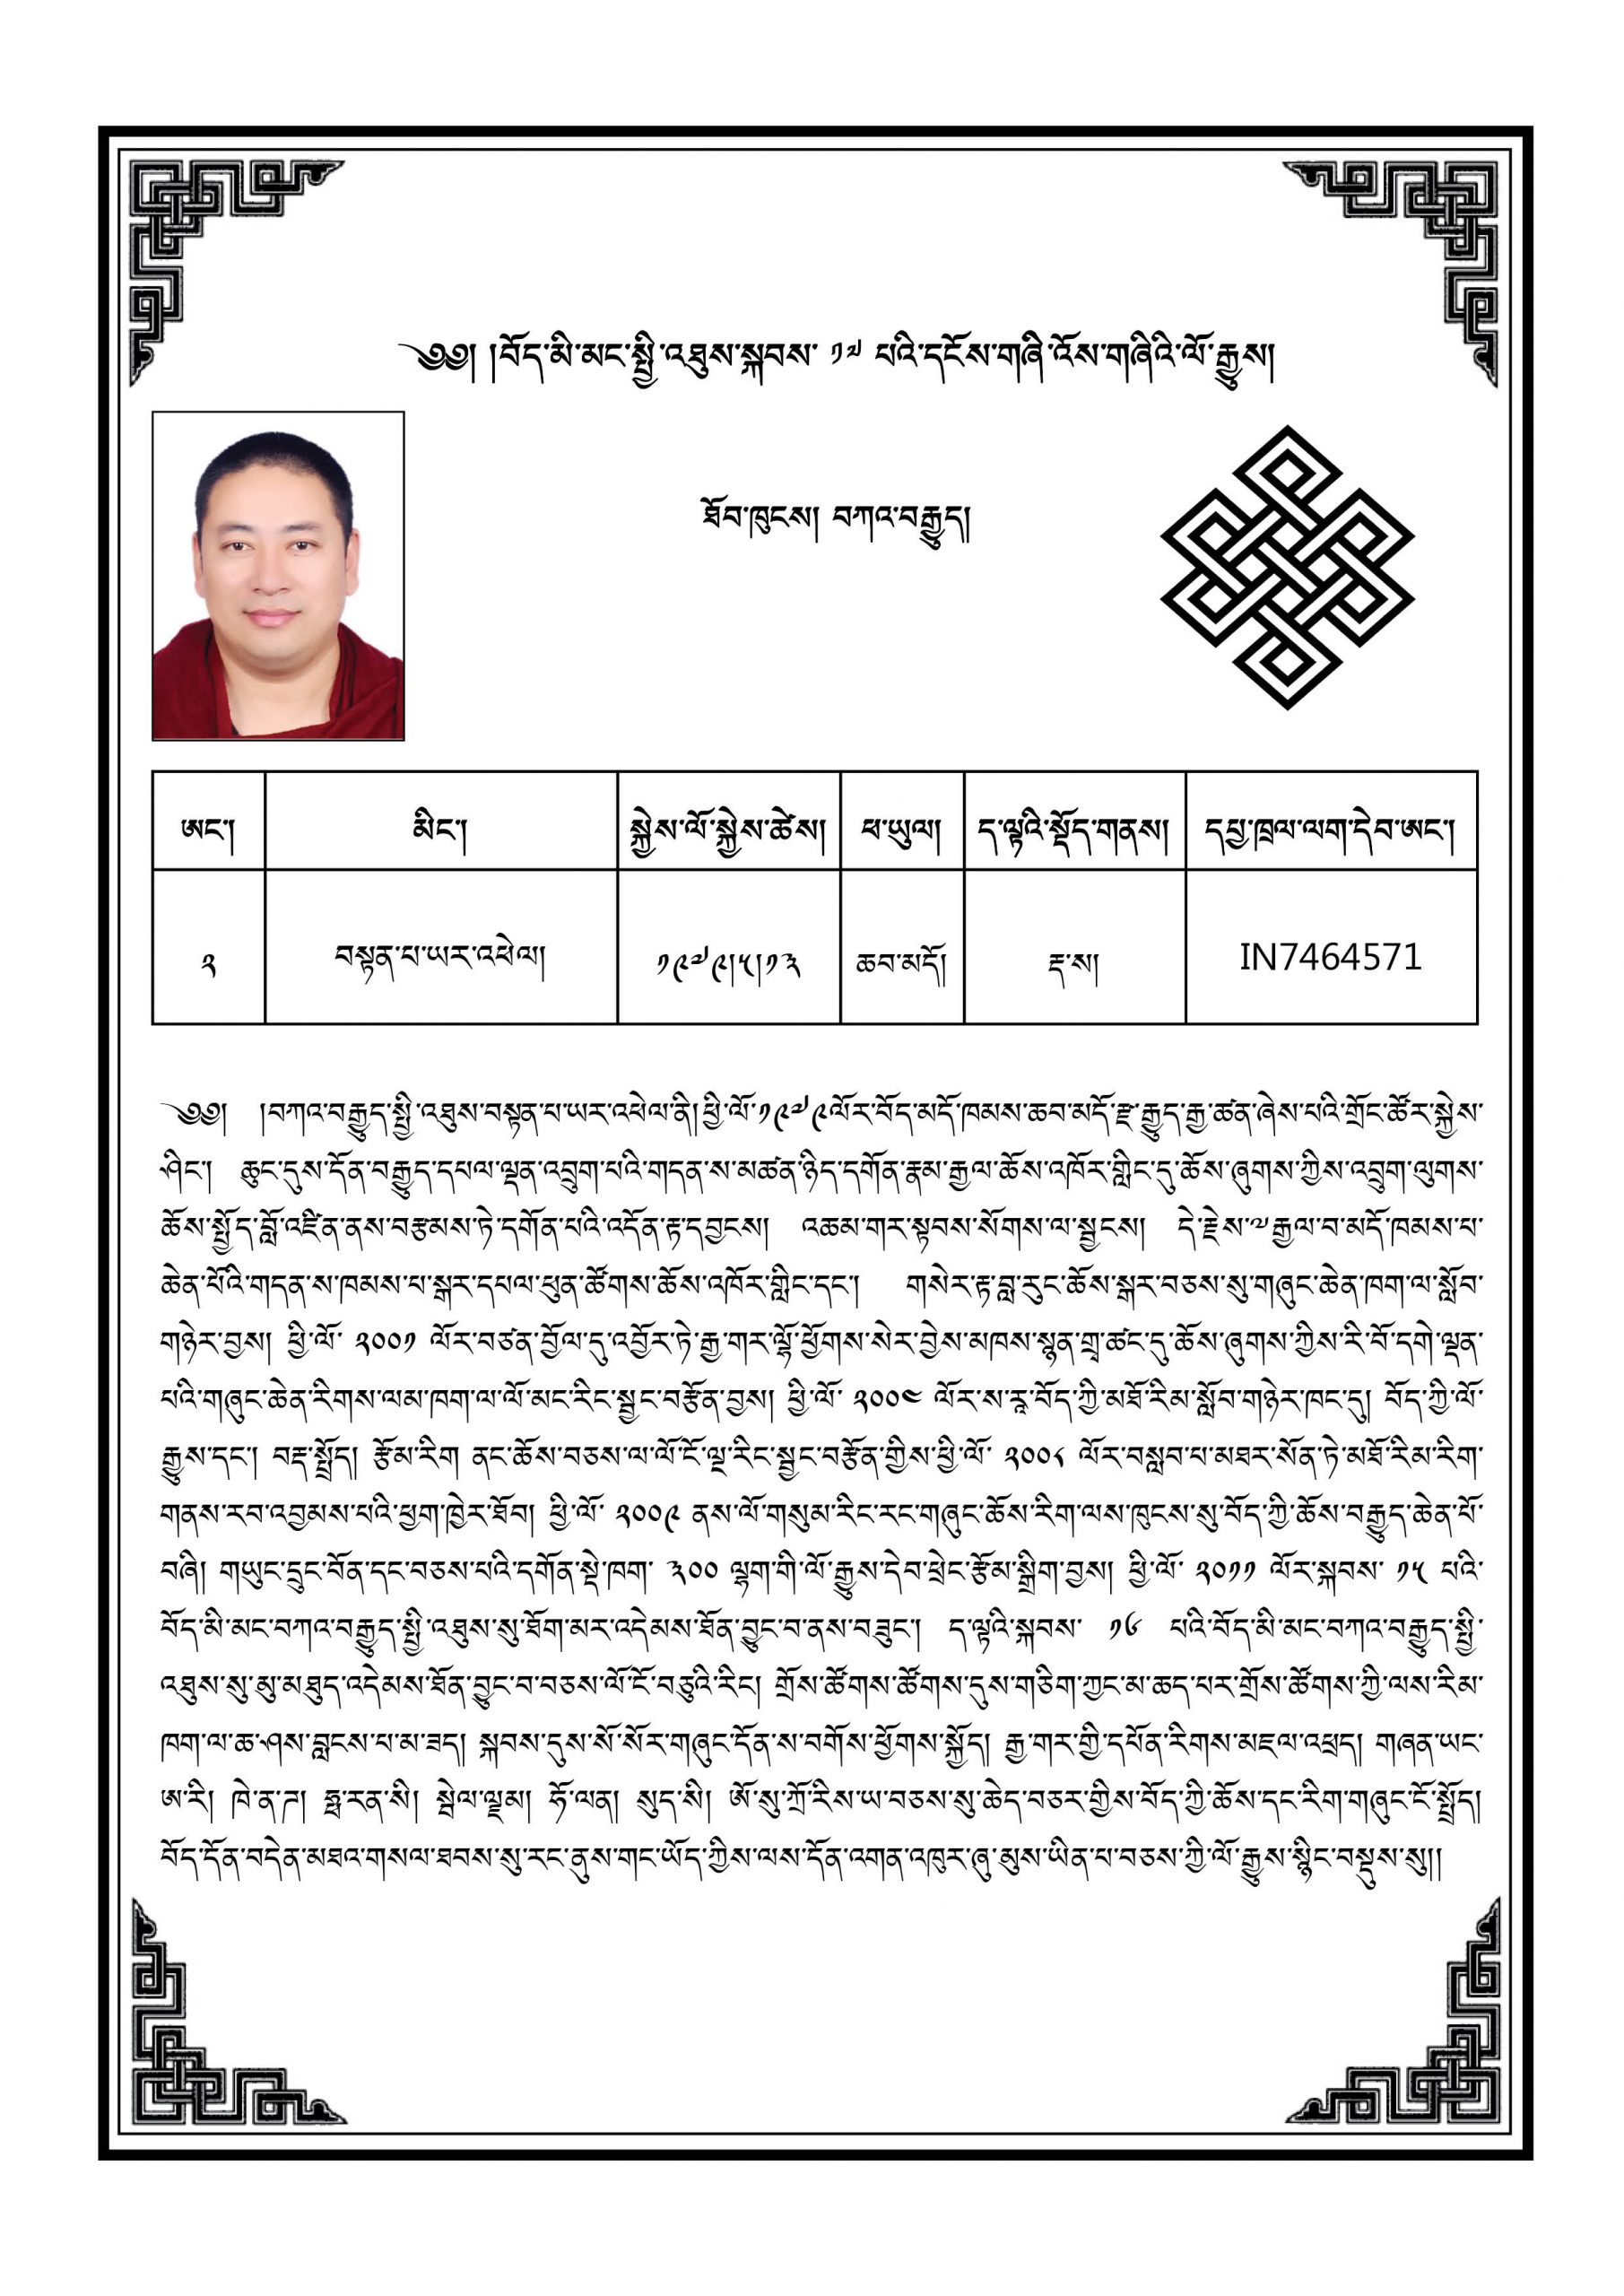 ༄༅། །བོད་མི་མང་སྤྱི་འཐུས་སྐབས་ ༡༧ པའི་དངོས་གཞི་འོས་གཞིའི་ལོ་རྒྱུས།
ཐོབ་ཁུངས། བཀའ་བརྒྱུད།
ཨང་། མིང་། སྐྱེས་ལོ་སྐྱེས་ཚེས། ཕ་ཡུལ། ད་ལྟའི་སྡོད་གནས། དཔྱ་ཁྲལ་ལག་དེབ་ཨང་།
༢ བསྟན་པ་ཡར་འཕེལ། ༡༩༧༩།༥།༡༣ ཆབ་མདོ། རྡ་ས། IN7464571
༄༅། །བཀའ་བརྒྱུད་སྤྱི་འཐུས་བསྟན་པ་ཡར་འཕེལ་ནི། ཕྱི་ལོ་༡༩༧༩ལོར་བོད་མདོ་ཁམས་ཆབ་མདོ་རྫ་རྒྱུད་རྒྱ་ཚན་ཞེས་པའི་གྲོང་ཚོར་སྐྱེས་
ཤིང་། ཆུང་དུས་དོན་བརྒྱུད་དཔལ་ལྡན་འབྲུག་པའི་གདན་ས་མཚན་ཉིད་དགོན་རྣམ་རྒྱལ་ཆོས་འཁོར་གླིང་དུ་ཆོས་ཞུགས་ཀྱིས་འབྲུག་ལུགས་
ཆོས་སྤྱོད་བློ་འཛིན་ནས་བརྩམས་ཏེ་དགོན་པའི་འདོན་རྟ་དབྱངས། འཆམ་གར་སྟབས་སོགས་ལ་སྦྱངས། དེ་རྗེས་༸རྒྱལ་བ་མདོ་ཁམས་པ་
ཆེན་པོའི་གདན་ས་ཁམས་པ་སྒར་དཔལ་ཕུན་ཚོགས་ཆོས་འཁོར་གླིང་དང་། གསེར་རྟ་བླ་རུང་ཆོས་སྒར་བཅས་སུ་གཞུང་ཆེན་ཁག་ལ་སློབ་
གཉེར་བྱས། ཕྱི་ལོ་ ༢༠༠༡ ལོར་བཙན་བྱོལ་དུ་འབྱོར་ཏེ་རྒྱ་གར་ལྷོ་ཕྱོགས་སེར་བྱེས་མཁས་སྙན་གྲྭ་ཚང་དུ་ཆོས་ཞུགས་ཀྱིས་རི་བོ་དགེ་ལྡན་
པའི་གཞུང་ཆེན་རིགས་ལམ་ཁག་ལ་ལོ་མང་རིང་སྦྱང་བརྩོན་བྱས། ཕྱི་ལོ་ ༢༠༠༤ ལོར་ས་རཱ་བོད་ཀྱི་མཐོ་རིམ་སློབ་གཉེར་ཁང་དུ། བོད་ཀྱི་ལོ་
རྒྱུས་དང་། བརྡ་སྤྲོད། རྩོམ་རིག ནང་ཆོས་བཅས་ལ་ལོ་ངོ་ལྔ་རིང་སྦྱང་བརྩོན་གྱིས་ཕྱི་ལོ་ ༢༠༠༨ ལོར་བསླབ་པ་མཐར་སོན་ཏེ་མཐོ་རིམ་རིག་
གནས་རབ་འབྱམས་པའི་ཕྱག་ཁྱེར་ཐོབ། ཕྱི་ལོ་ ༢༠༠༩ ནས་ལོ་གསུམ་རིང་རང་གཞུང་ཆོས་རིག་ལས་ཁུངས་སུ་བོད་ཀྱི་ཆོས་བརྒྱུད་ཆེན་པོ་
བཞི། གཡུང་དྲུང་བོན་དང་བཅས་པའི་དགོན་སྡེ་ཁག་ ༣༠༠ ལྷག་གི་ལོ་རྒྱུས་དེབ་ཕྲེང་རྩོམ་སྒྲིག་བྱས། ཕྱི་ལོ་ ༢༠༡༡ ལོར་སྐབས་ ༡༥ པའི་
བོད་མི་མང་བཀའ་བརྒྱུད་སྤྱི་འཐུས་སུ་ཐོག་མར་འདེམས་ཐོན་བྱུང་བ་ནས་བཟུང་། ད་ལྟའི་སྐབས་ ༡༦ པའི་བོད་མི་མང་བཀའ་བརྒྱུད་སྤྱི་
འཐུས་སུ་མུ་མཐུད་འདེམས་ཐོན་བྱུང་བ་བཅས་ལོ་ངོ་བཅུའི་རིང། གྲོས་ཚོགས་ཚོགས་དུས་གཅིག་ཀྱང་མ་ཆད་པར་གྲོས་ཚོགས་ཀྱི་ལས་རིམ་
ཁག་ལ་ཆ་ཤས་བླངས་པ་མ་ཟད། སྐབས་དུས་སོ་སོར་གཞུང་དོན་ས་བགོས་ཕྱོགས་སྐྱོད། རྒྱ་གར་གྱི་དཔོན་རིགས་མཇལ་འཕྲད། གཞན་ཡང་
ཨ་རི། ཁེ་ན་ཌ། ཧྥ་རན་སི། སྦེལ་ལྗམ། ཧོ་ལན། སུད་སི། ཨོ་སུ་ཀྲོ་རིས་ཡ་བཅས་སུ་ཆེད་བཅར་གྱིས་བོད་ཀྱི་ཆོས་དང་རིག་གཞུང་ངོ་སྤྲོད།
བོད་དོན་བདེན་མཐའ་གསལ་ཐབས་སུ་རང་ནུས་གང་ཡོད་ཀྱིས་ལས་དོན་འགན་འཁུར་ཞུ་མུས་ཡིན་པ་བཅས་ཀྱི་ལོ་རྒྱུས་སྙིང་བསྡུས་སུ།།